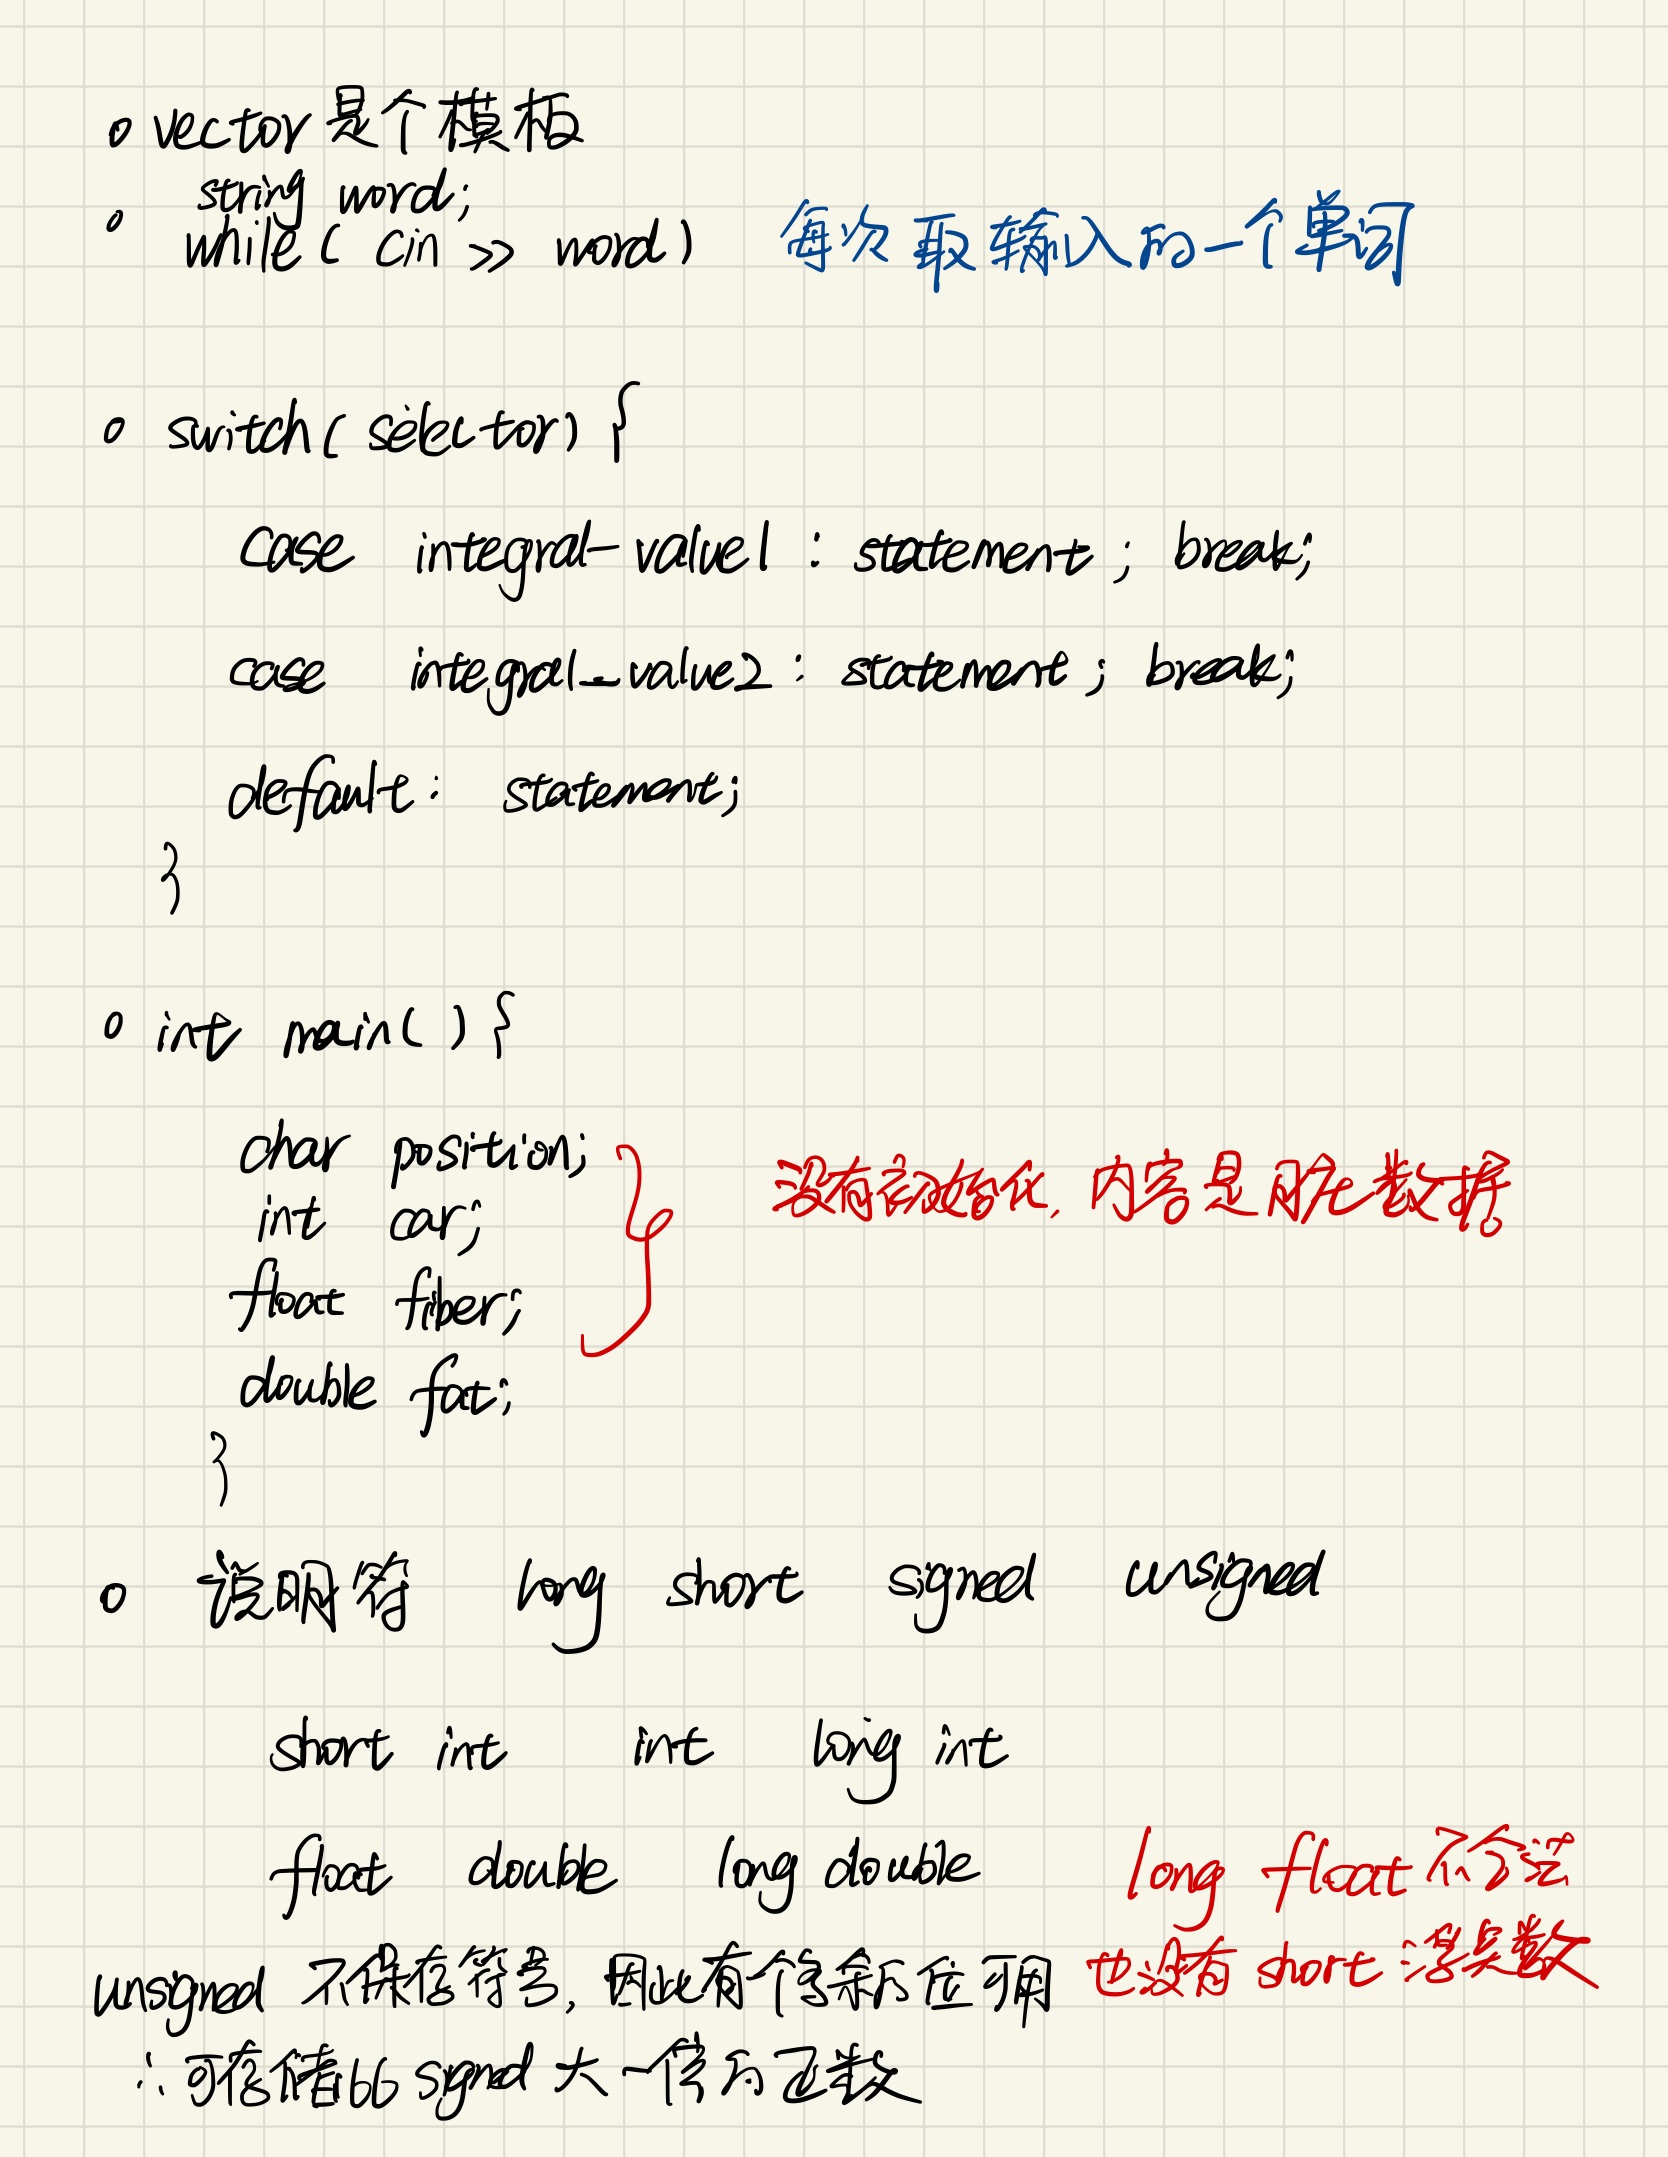 vector是个模板
string word;
while( cin >> word) 每次取输入的一个单词
switch(selector){
case integral-value1 : statement ; break;
case integral_value2 : statement ; break;
default : statement;
}
int main(){
char position;
int car;
float fiber;
double fat;
}
没有初始化, 内容是脏数据
说明符 long short signed unsigned
short int int long int
float double long double
long float 不合法
也没有 short 浮点数
unsigned 不保存符号, 因此有个多余的位可用
∴可存储比 signed 大一倍的正数